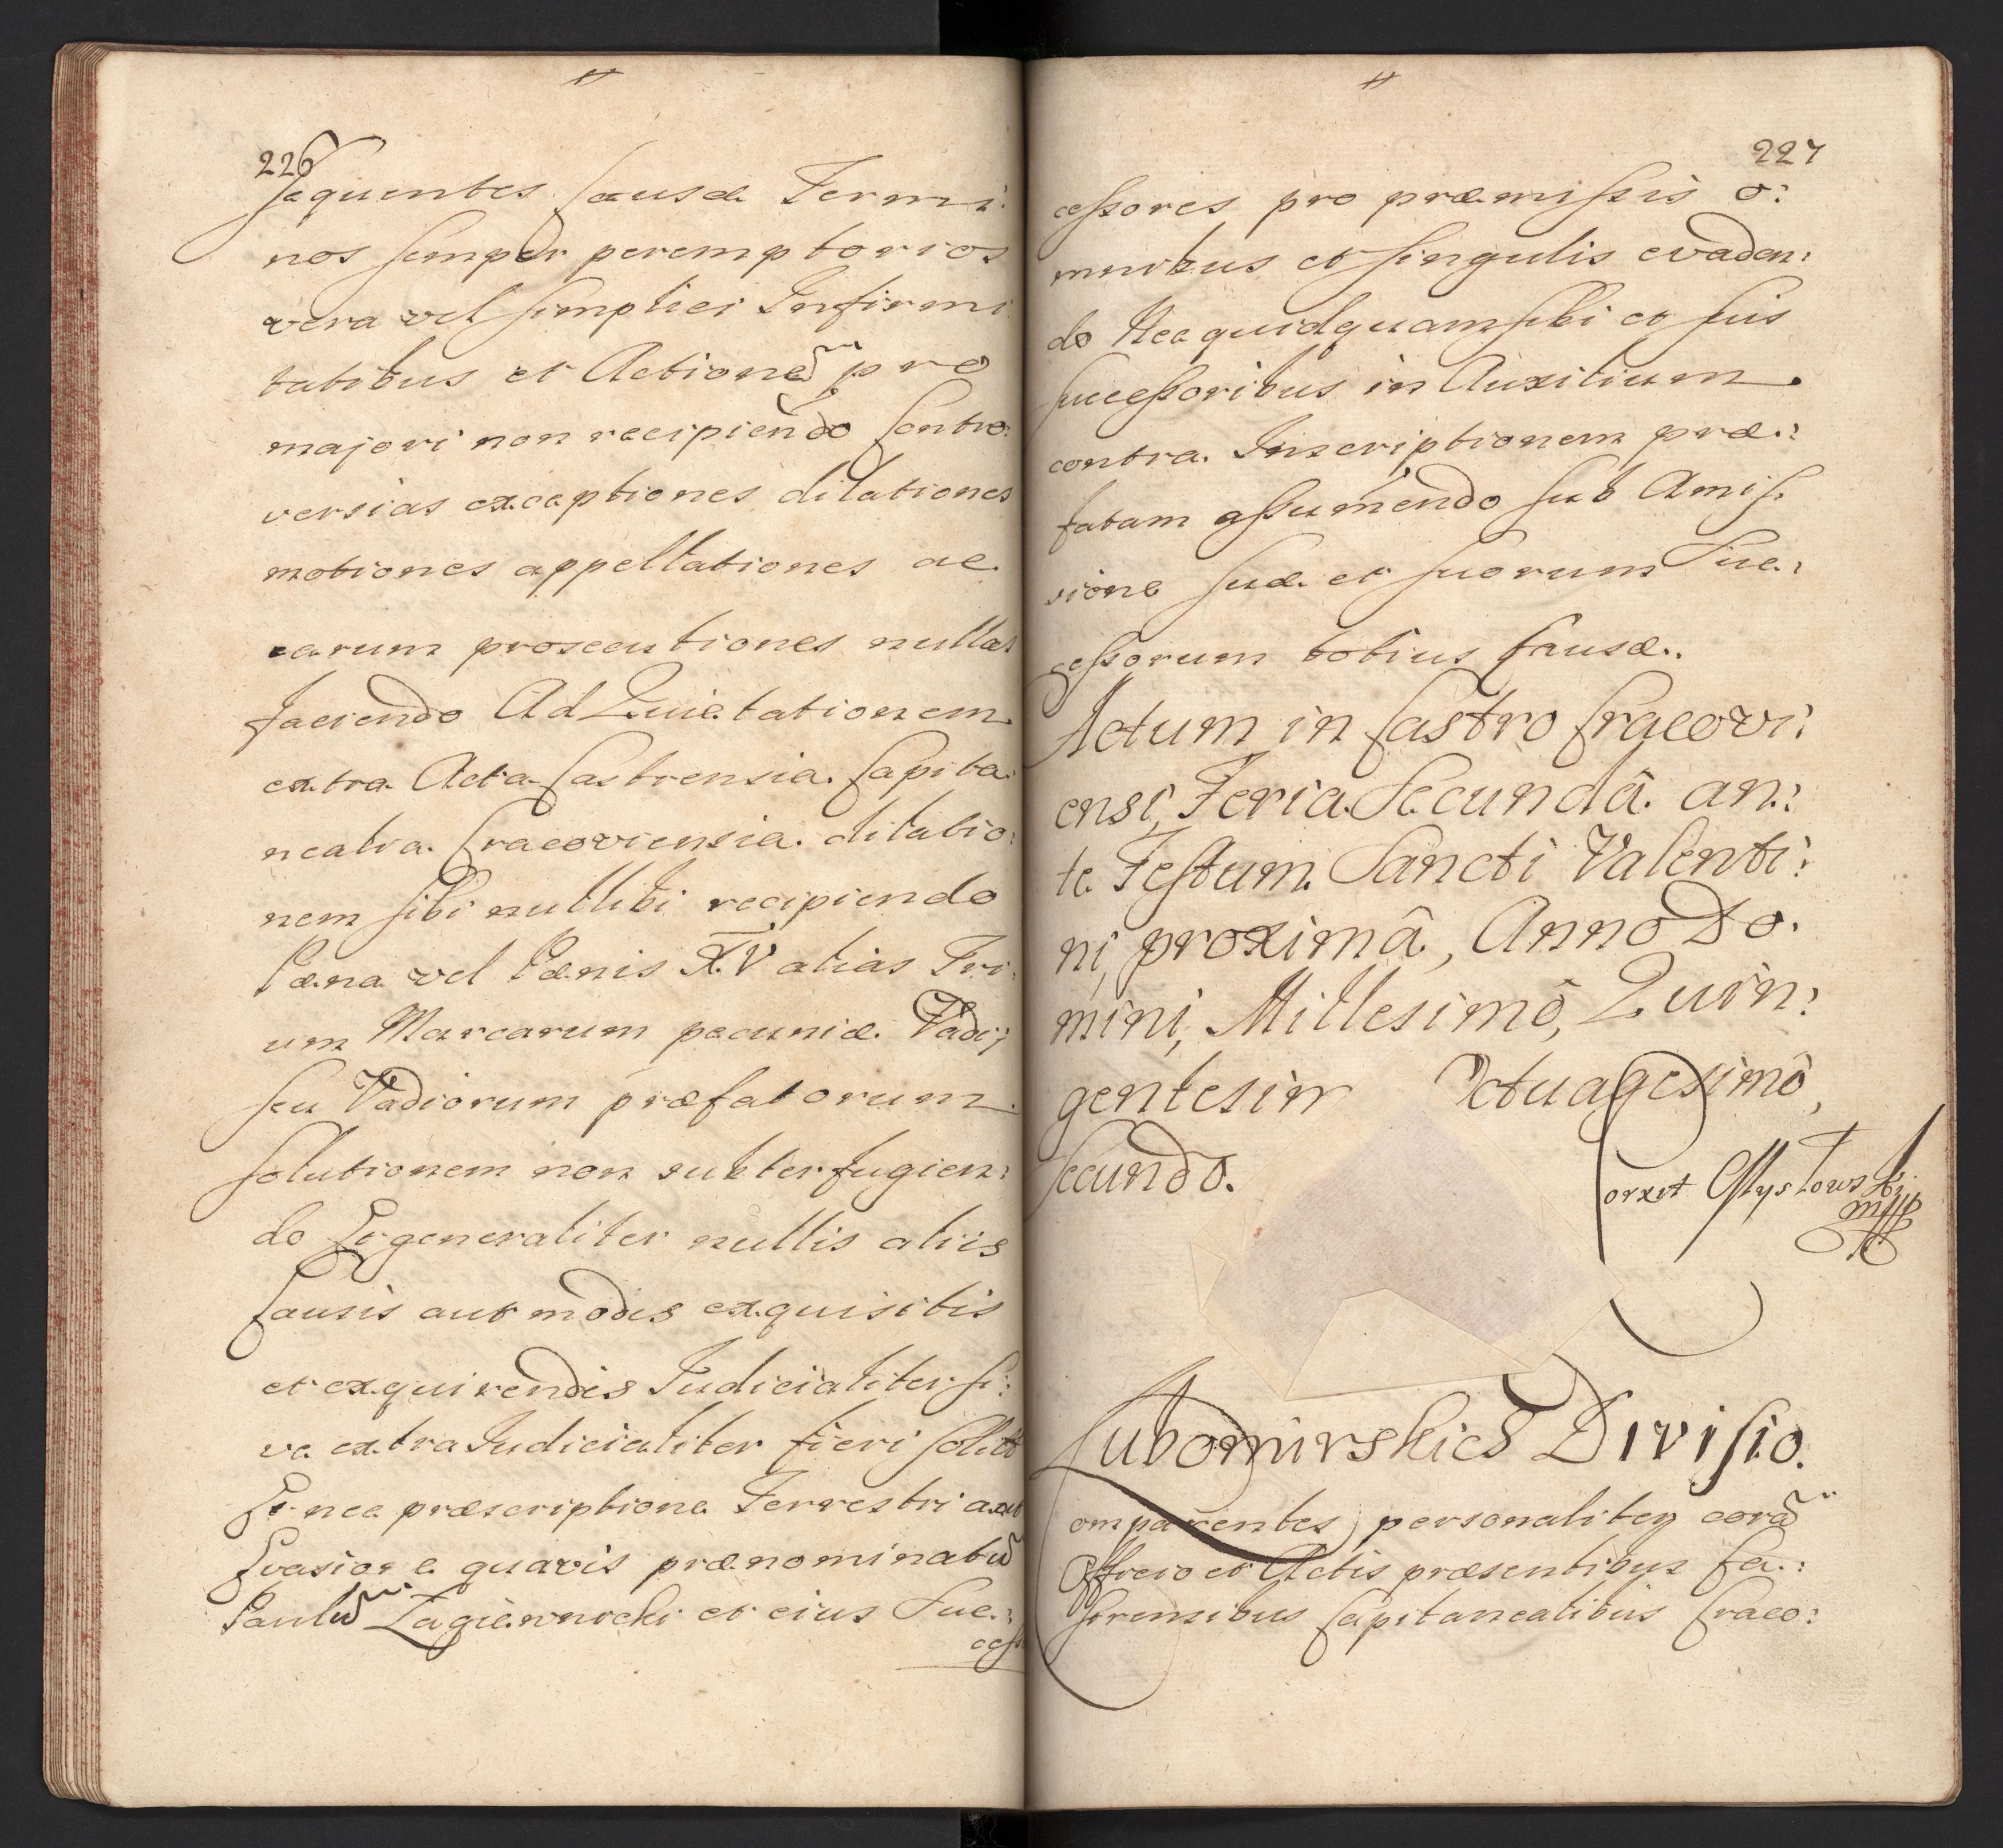 226
sequentes Causæ Termi:
nos semper peremptorios
vera vel simplici Infirmi
tatibus et Actione pro
majori non recipiendo Contro:
versias exceptiones dilationes
motiones appellationes ac
earum prosecutiones nullas
faciendo Ad Quietationem
extra Acta Castrensia Capita:
nealia Cracoviensia dilatio:
nem sibi nullibi recipiendo
Pæna vel Pænis XV alias Tri:
um Marcarum pecuniæ Vadij
seu Vadiorum præfatorum
solutionem non subterfugien:
do Et generaliter nullis aliis
Causis aut modis exquisitis
et exquirendis Judicialiter si:
ve extraJudicialiter fieri solitt
Et nec præscriptione Terrestri aut
Evasione quavis prænominatu
Paulu Łagiewnicki et eius Suc:
cess
227
cessores pro præmissis o:
mnibus et singulis evaden:
do Nec quidquam sibi et suis
successoribus in Auxilium
contra Inscriptionem præ:
fatam assumendo sub Amis
sione suæ et suorum Suc:
cessorum totius Causæ.
Actum in Castro Cracovi:
ensi, Feria Secundâ an:
te Festum Sancti Valenti:
ni, proximâ, Anno Do.
mini, Millesimô, Quin:
gentesim Octuagesimô,
secundo.
Corxit Mysłowski
mpp
Lubomirskich Divisio.
Comparentes personaliter corã
Officio et Actis præsentibus Ca:
strensibus Capitanealibus Craco: